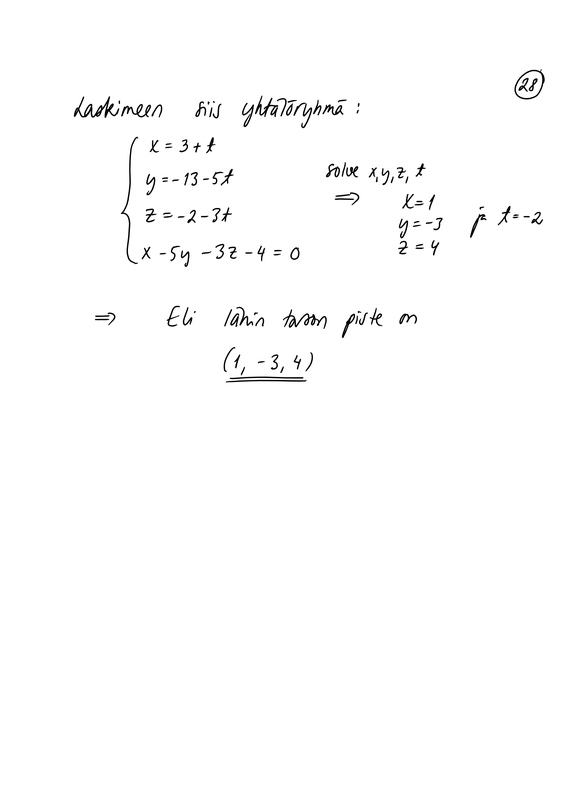 28
Laskimeen siis yhtälöryhmä:
x = 3 + t
y = -13 - 5t
z = -2 - 3t
x - 5y - 3z - 4 = 0
solve x, y, z, t
⇒ x = 1
y = -3 ja t = -2
z = 4
⇒ Eli lähin tason piste on
(1, -3, 4)